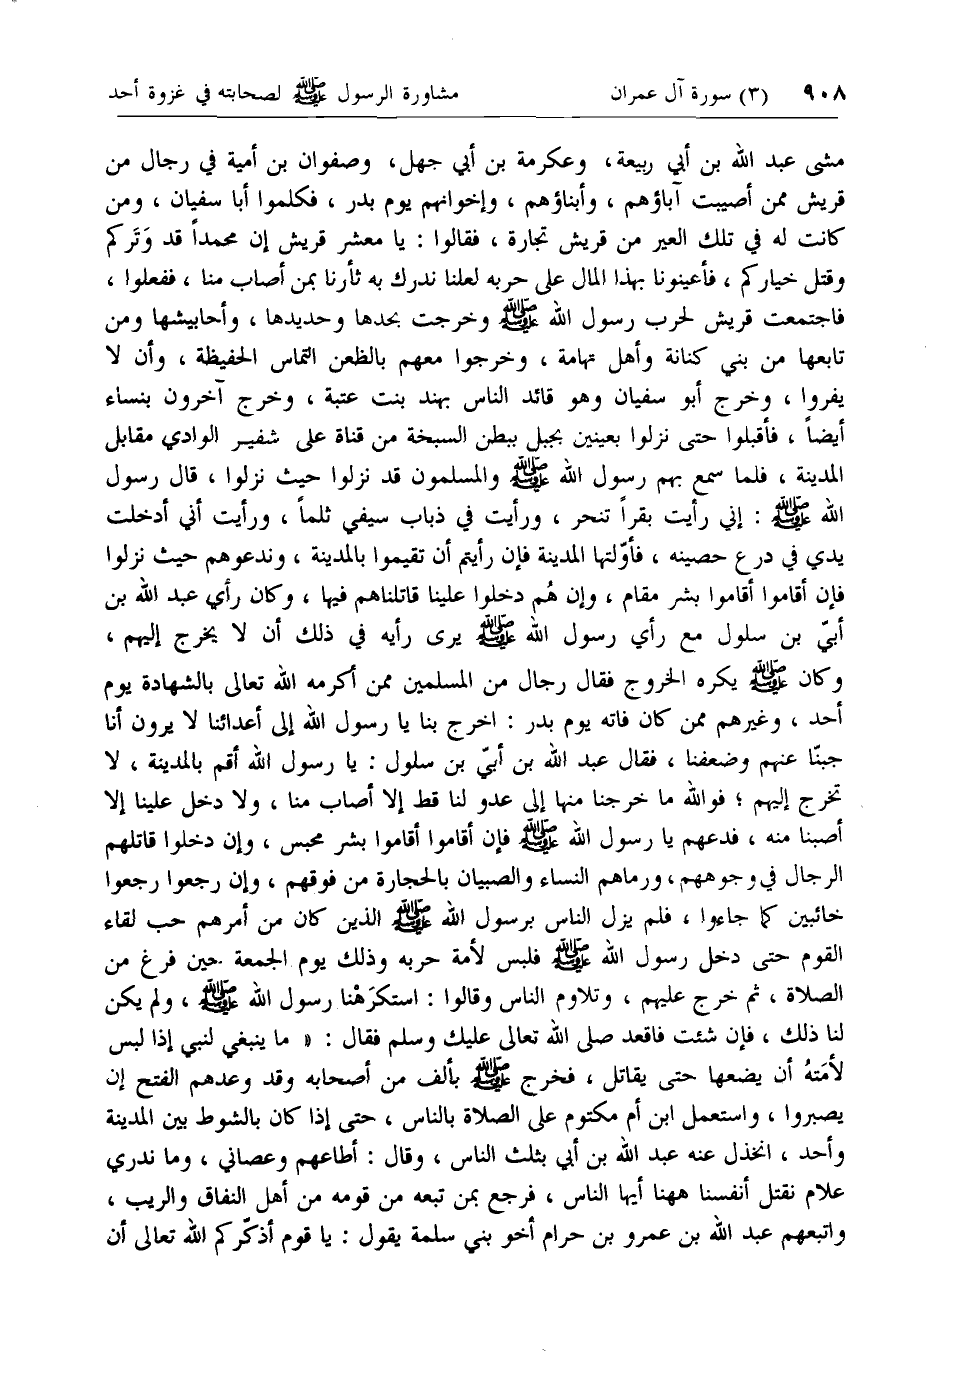 ٩٠٨ (٣) سورة آل عمران مشاورة الرسول ﷺ لصحابته في غزوة أحد
مشى عبد الله بن أبي ربيعة، وعكرمة بن أبي جهل، وصفوان بن أمية في رجال من
قريش ممن أصيبت آباؤهم ، وأبناؤهم ، وإخوانهم يوم بدر ، فكلموا أبا سفيان ، ومن
كانت له في تلك العير من قريش تجارة ، فقالوا : يا معشر قريش إن محمداً قد وَتَركم
وقتل خياركم ، فأعينونا بهذا المال على حربه لعلنا ندرك به ثأرنا بمن أصاب منا ، ففعلوا ،
فاجتمعت قريش لحرب رسول الله ﷺ وخرجت بحدها وحديدها ، وأحابيشها ومن
تابعها من بني كنانة وأهل تهامة ، وخرجوا معهم بالظعن التماس الحفيظة ، وأن لا
يفروا ، وخرج أبو سفيان وهو قائد الناس بهند بنت عتبة ، وخرج آخرون بنساء
أيضاً ، فأقبلوا حتى نزلوا بعينين بجبل ببطن السبخة من قناة على شفير الوادي مقابل
المدينة ، فلما سمع بهم رسول الله ﷺ والمسلمون قد نزلوا حيث نزلوا ، قال رسول
الله ﷺ : إني رأيت بقراً تنحر ، ورأيت في ذباب سيفي ثلماً ، ورأيت أني أدخلت
يدي في درع حصينه ، فأوّلتها المدينة فإن رأيتم أن تقيموا بالمدينة ، وندعوهم حيث نزلوا
فإن أقاموا أقاموا بشر مقام ، وإن هُم دخلوا علينا قاتلناهم فيها ، وكان رأي عبد الله بن
أبيّ بن سلول مع رأي رسول الله ﷺ يرى رأيه في ذلك أن لا يخرج إليهم ،
وكان ﷺ يكره الخروج فقال رجال من المسلمين ممن أكرمه الله تعالى بالشهادة يوم
أحد ، وغيرهم ممن كان فاته يوم بدر : اخرج بنا يا رسول الله إلى أعدائنا لا يرون أنا
جبنّا عنهم وضعفنا ، فقال عبد الله بن أبيّ بن سلول : يا رسول الله أقم بالمدينة ، لا
تخرج إليهم ؛ فوالله ما خرجنا منها إلى عدو لنا قط إلا أصاب منا ، ولا دخل علينا إلا
أصبنا منه ، فدعهم يا رسول الله ﷺ فإن أقاموا أقاموا بشر محبس ، وإن دخلوا قاتلهم
الرجال في وجوههم ، ورماهم النساء والصبيان بالحجارة من فوقهم ، وإن رجعوا رجعوا
خائبين كما جاءوا ، فلم يزل الناس برسول الله ﷺ الذين كان من أمرهم حب لقاء
القوم حتى دخل رسول الله ﷺ فلبس لأمة حربه وذلك يوم الجمعة حين فرغ من
الصلاة ، ثم خرج عليهم ، وتلاوم الناس وقالوا : استكرَهْنا رسول الله ﷺ ، ولم يكن
لنا ذلك ، فإن شئت فاقعد صلى الله تعالى عليك وسلم فقال : « ما ينبغي لنبي إذا لبس
لأمَتهُ أن يضعها حتى يقاتل ، فخرج ﷺ بألف من أصحابه وقد وعدهم الفتح إن
يصبروا ، واستعمل ابن أم مكتوم على الصلاة بالناس ، حتى إذا كان بالشوط بين المدينة
وأحد ، انخذل عنه عبد الله بن أبي بثلث الناس ، وقال : أطاعهم وعصاني ، وما ندري
علام نقتل أنفسنا ههنا أيها الناس ، فرجع بمن تبعه من قومه من أهل النفاق والريب ،
واتبعهم عبد الله بن عمرو بن حرام أخو بني سلمة يقول : يا قوم أذكّركم الله تعالى أن